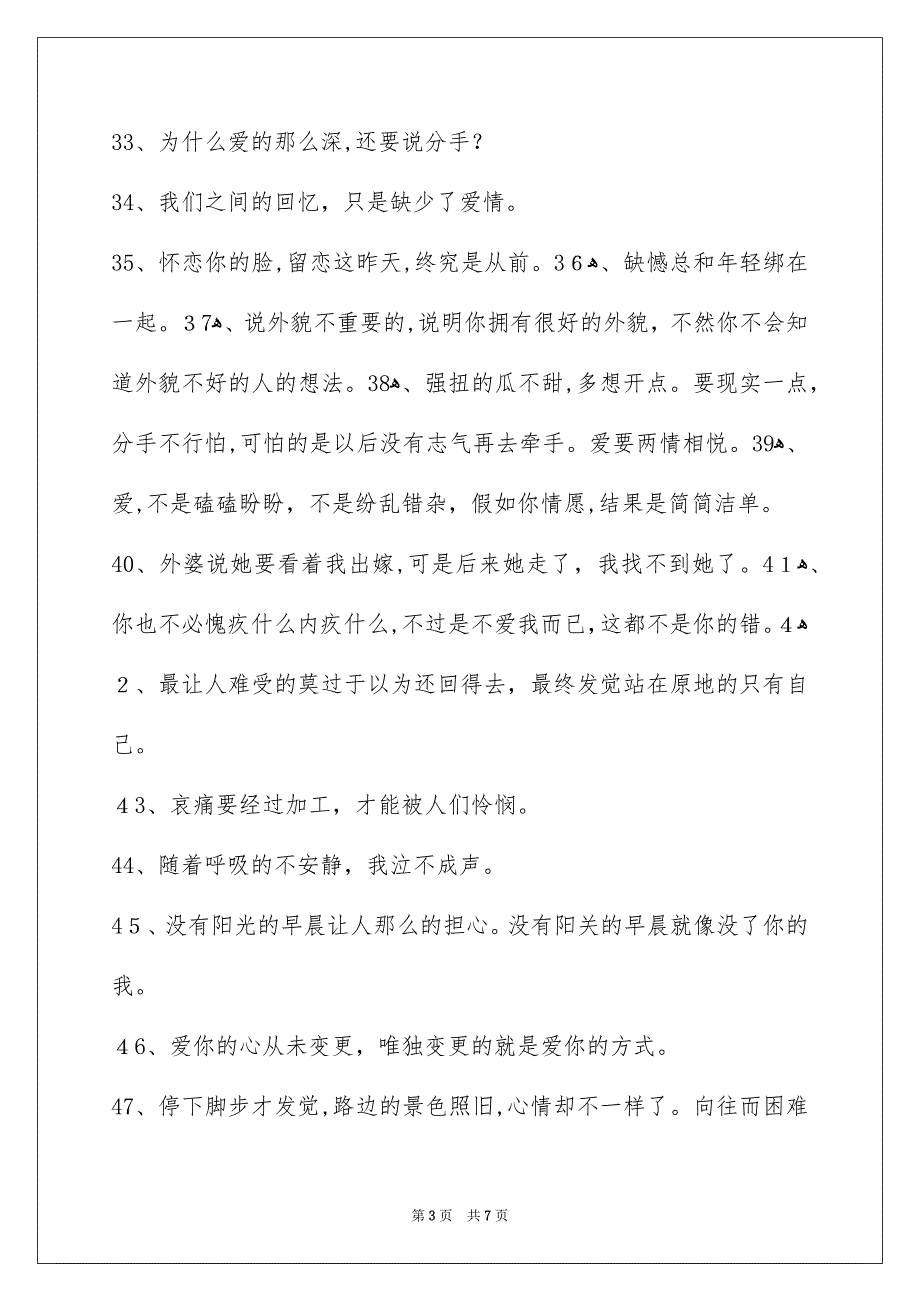 33、为什么爱的那么深,还要说分手?
34、我们之间的回忆，只是缺少了爱情。
35、怀恋你的脸,留恋这昨天,终究是从前。３６ﻫ、缺憾总和年轻绑在
一起。３7ﻫ、说外貌不重要的,说明你拥有很好的外貌，不然你不会知
道外貌不好的人的想法。38ﻫ、强扭的瓜不甜,多想开点。要现实一点，
分手不行怕,可怕的是以后没有志气再去牵手。爱要两情相悦。39ﻫ、
爱,不是磕磕盼盼，不是纷乱错杂，假如你情愿,结果是简简洁单。
40、外婆说她要看着我出嫁,可是后来她走了，我找不到她了。４１ﻫ、
你也不必愧疚什么内疚什么,不过是不爱我而已,这都不是你的错。４ﻫ
２、最让人难受的莫过于以为还回得去，最终发觉站在原地的只有自
己。
４3、哀痛要经过加工，才能被人们怜悯。
44、随着呼吸的不安静，我泣不成声。
4５、没有阳光的早晨让人那么的担心。没有阳关的早晨就像没了你的
我。
４6、爱你的心从未变更，唯独变更的就是爱你的方式。
47、停下脚步才发觉,路边的景色照旧,心情却不一样了。向往而困难
第 3 页 共 7 页